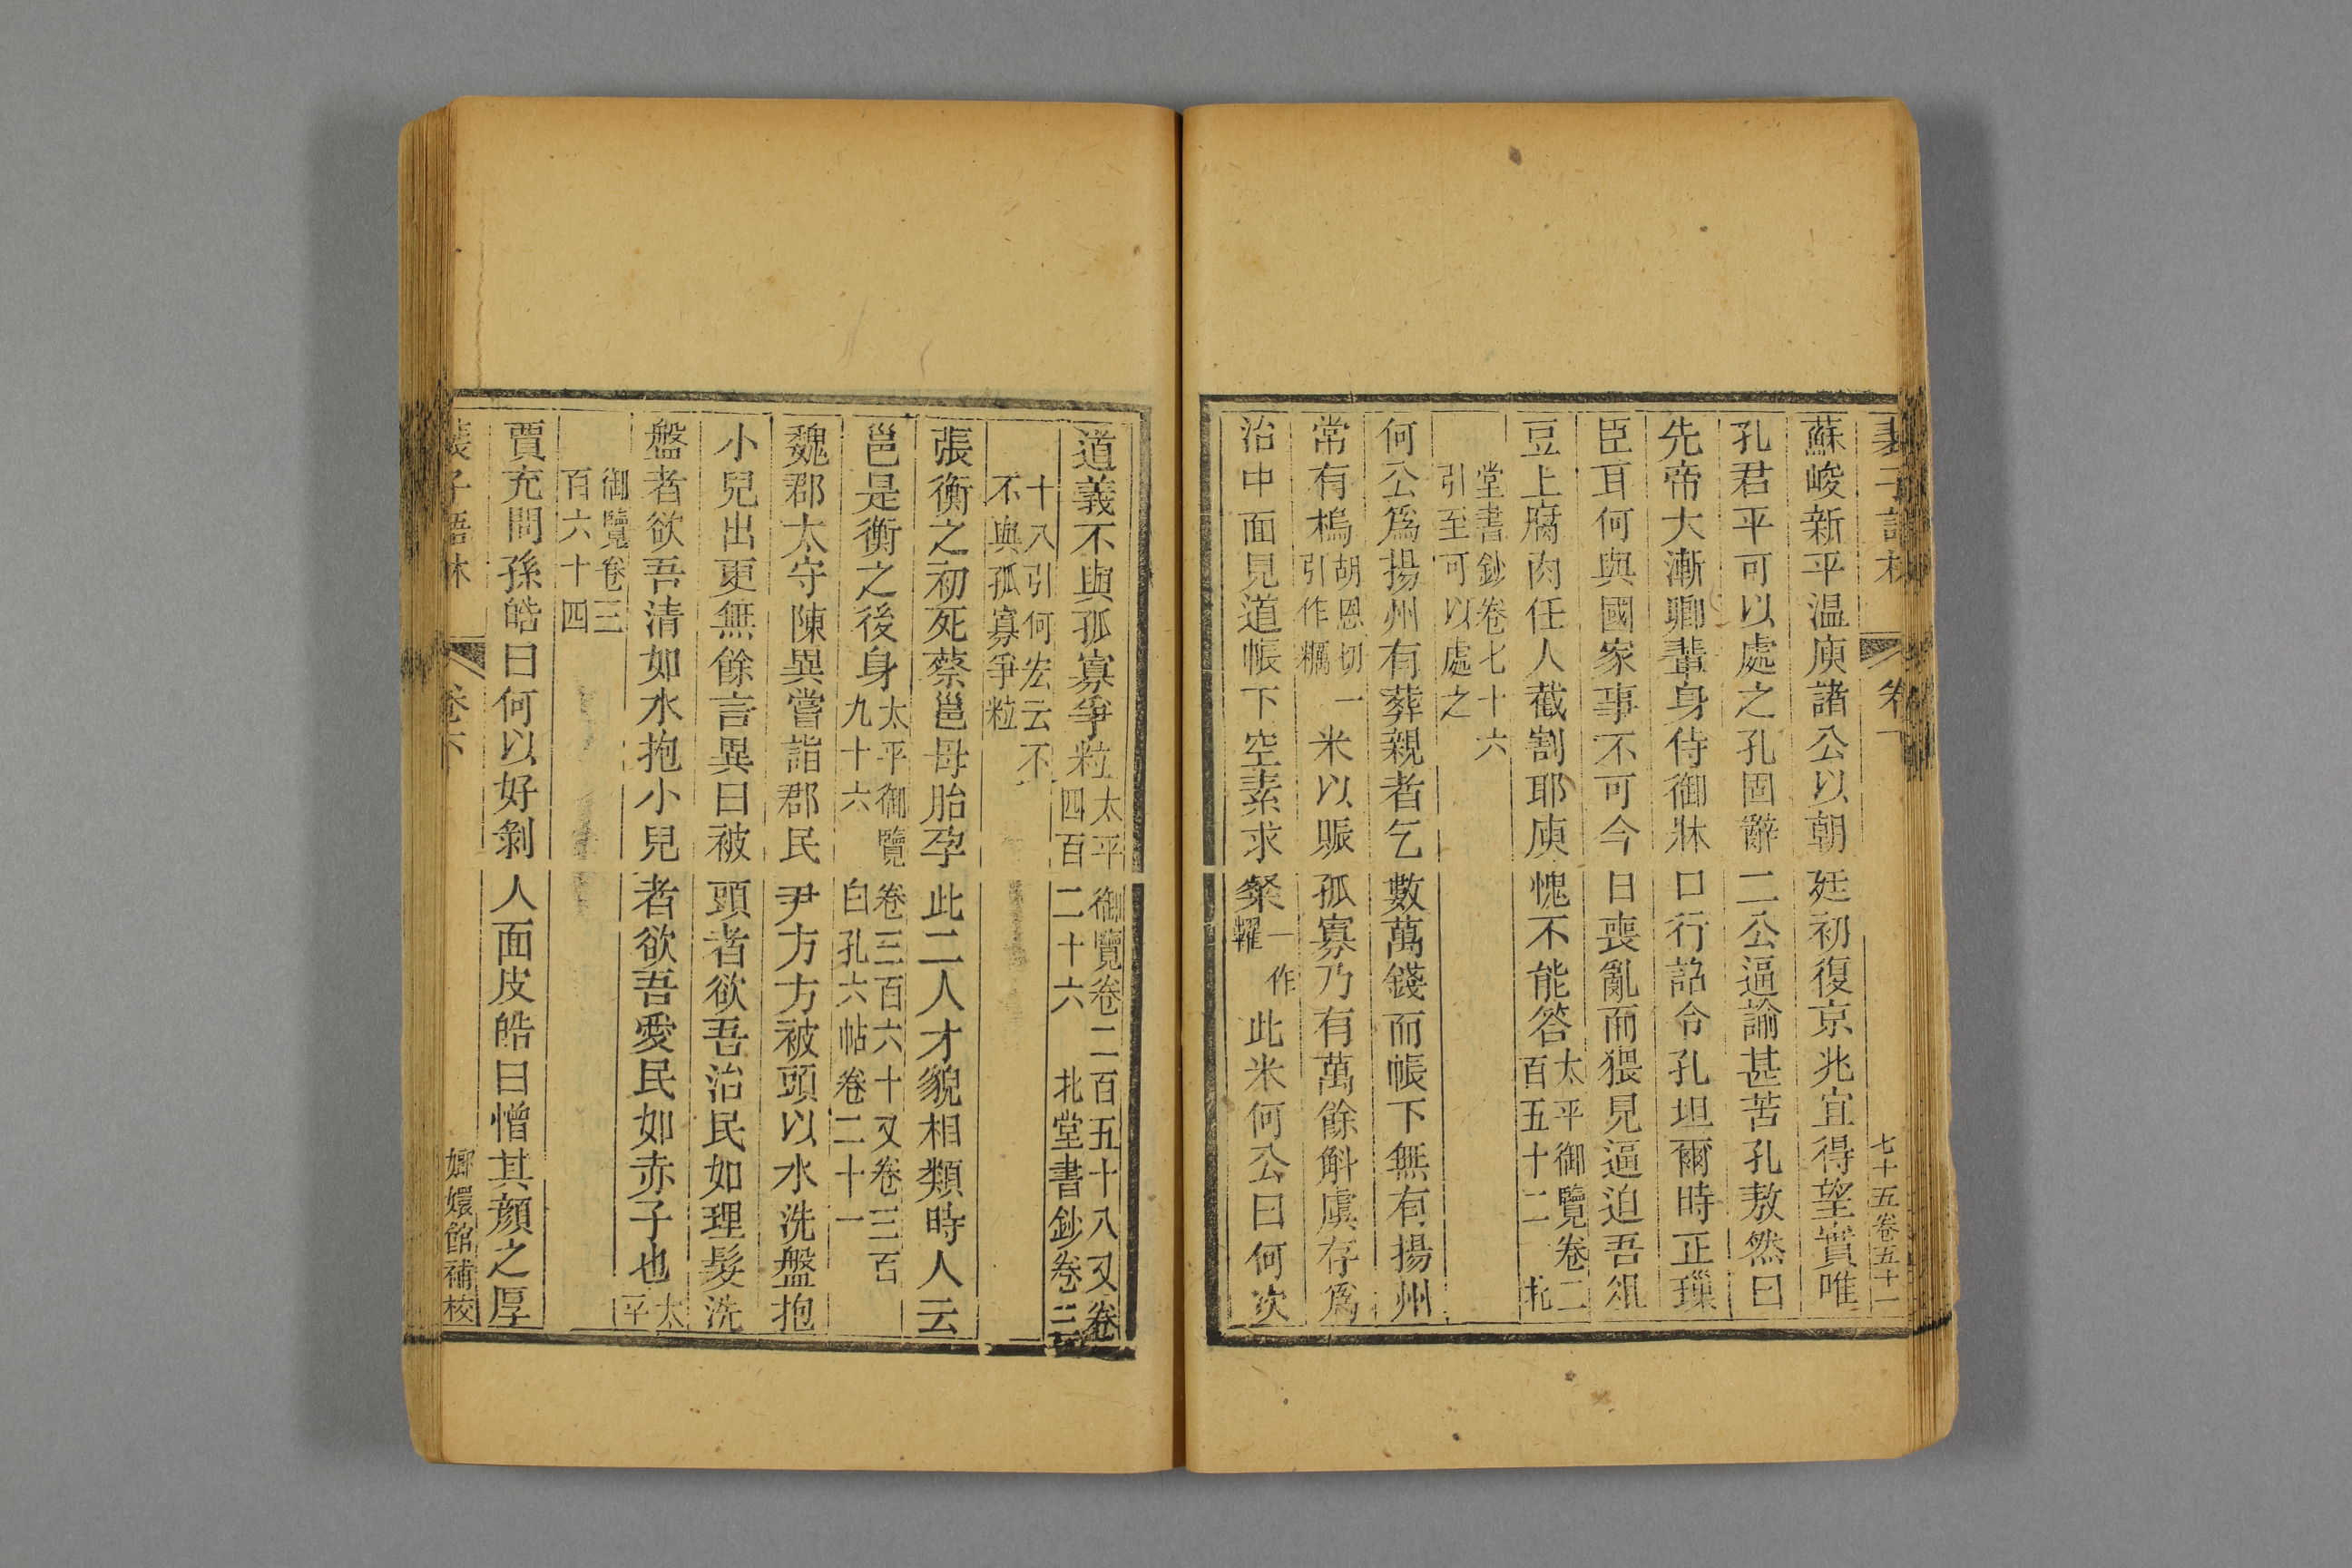 裴子語林 卷一 七十五卷五十一
蘇峻新平温庾諸公以朝廷初復京兆宜得望實唯
孔君平可以處之孔固辭二公逼諭甚苦孔敖然曰
先帝大漸卿輩身侍御牀口行詔令孔坦爾時正璅
臣耳何與國家事不可今日喪亂而猥見逼迫吾俎
豆上腐肉任人截割耶庾愧不能答太平御覽卷二百五十二 北
堂書鈔卷七十六引至可以處之
何公爲揚州有葬親者乞數萬錢而帳下無有揚州
常有䅩胡恩切一引作糲米以賑孤寡乃有萬餘斛虞存爲
治中面見道帳下空素求粲一作糶此米何公曰何次
道義不與孤寡爭粒太平御覽卷二百五十八又卷四百二十六 北堂書鈔卷三
十八引何宏云不不與孤寡爭粒
張衡之初死蔡邕母胎孕此二人才貌相類時人云
邕是衡之後身太平御覽卷三百六十又卷三百九十六 白孔六帖卷二十一
魏郡太守陳異嘗詣郡民尹方方被頭以水洗盤抱
小兒出更無餘言異曰被頭者欲吾治民如理髮洗
盤者欲吾清如水抱小兒者欲吾愛民如赤子也太平
御覽卷三百六十四
賈充問孫皓曰何以好剝人面皮皓曰憎其顔之厚
裴子語林 卷下 嫏嬛館補校